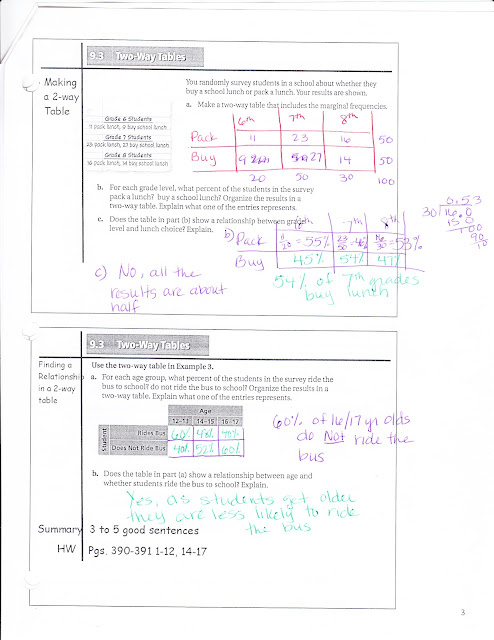 9.3 Two-Way Tables
Making
a 2-way
Table
You randomly survey students in a school about whether they
buy a school lunch or pack a lunch. Your results are shown.
a. Make a two-way table that includes the marginal frequencies.
Grade 6 Students
11 pack lunch, 9 buy school lunch
Grade 7 Students
23 pack lunch, 27 buy school lunch
Grade 8 Students
16 pack lunch, 14 buy school lunch
6th 7th 8th
Pack 11 23 16 50
Buy 9 27 14 50
20 50 30 100
b. For each grade level, what percent of the students in the survey
pack a lunch? buy a school lunch? Organize the results in a
two-way table. Explain what one of the entries represents.
c. Does the table in part (b) show a relationship between grade
level and lunch choice? Explain.
7th 8th
b) Pack 11/20 = 55% 23/50 = 46% 16/30 = 53%
Buy 45% 54% 47%
54% of 7th grades
buy lunch
0.53
30 16.0
150
100
90
10
c) No, all the
results are about
half
9.3 Two-Way Tables
Finding a
Relationship
in a 2-way
table
Use the two-way table in Example 3.
a. For each age group, what percent of the students in the survey ride the
bus to school? do not ride the bus to school? Organize the results in a
two-way table. Explain what one of the entries represents.
Age
12–13 14–15 16–17
Student
Rides Bus 60% 48% 40%
Does Not Ride Bus 40% 52% 60%
60% of 16/17 yr olds
do Not ride the
bus
b. Does the table in part (a) show a relationship between age and
whether students ride the bus to school? Explain.
Yes, as students get older
they are less likely to ride
the bus
Summary 3 to 5 good sentences
HW Pgs. 390-391 1-12, 14-17
3